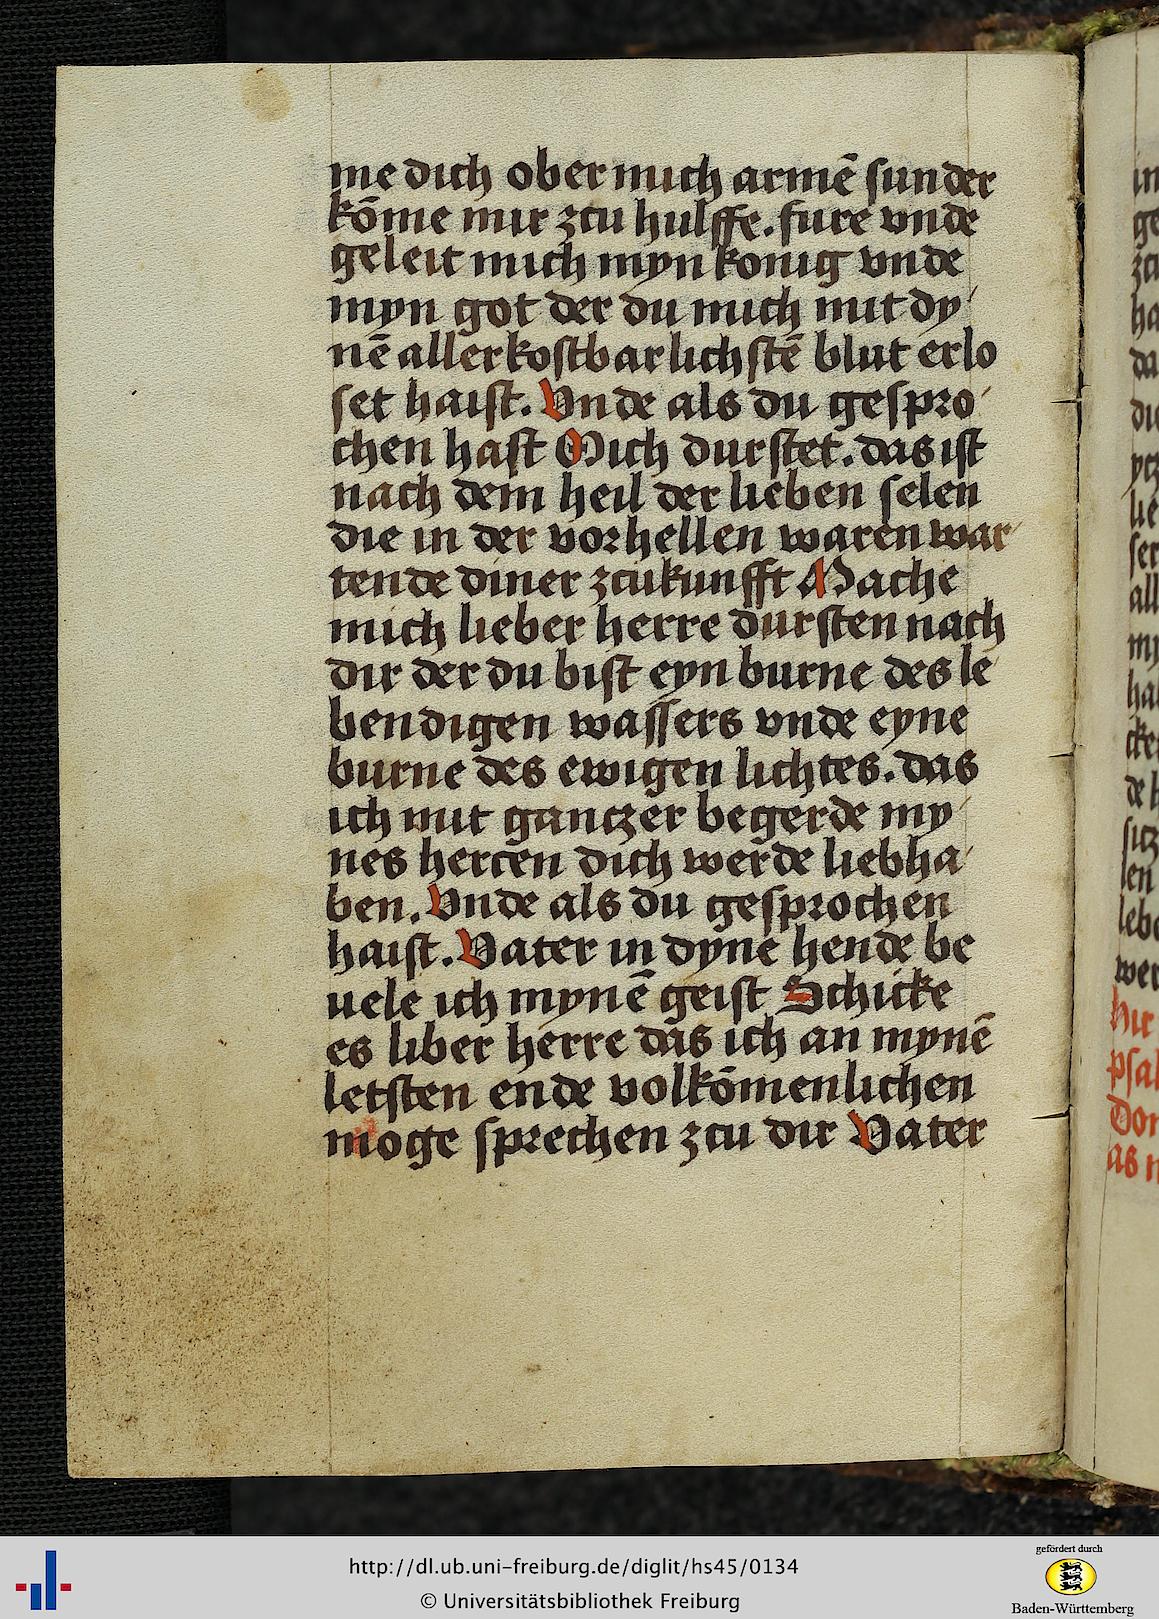 me dich ober mich armē sunder
kōme mir zcu hulffe. fure vnde
geleit mich myn konig vnde
myn got der du mich mit dy
nē allerkostbarlichstē blut erlo
set haist. Vnde als du gespro
chen hast Mich durstet. das ist
nach dem heil der lieben selen
die in der vorhellen waren war
tende diner zcukunfft Mache
mich lieber herre dursten nach
dir der du bist eyn burne des le
bendigen wassers vnde eyne
burne des ewigen lichtes. das
ich mit ganczer begerde my
nes hercen dich werde liebha
ben. Vnde als du gesprochen
haist. Vater in dyne hende be
uele ich mynē geist Schicke
es liber herre das ich an mynē
letsten ende volkōmenlichen
moge sprechen zcu dir Vater
http://dl.ub.uni-freiburg.de/diglit/hs45/0134
© Universitätsbibliothek Freiburg
gefördert durch
Baden-Württemberg